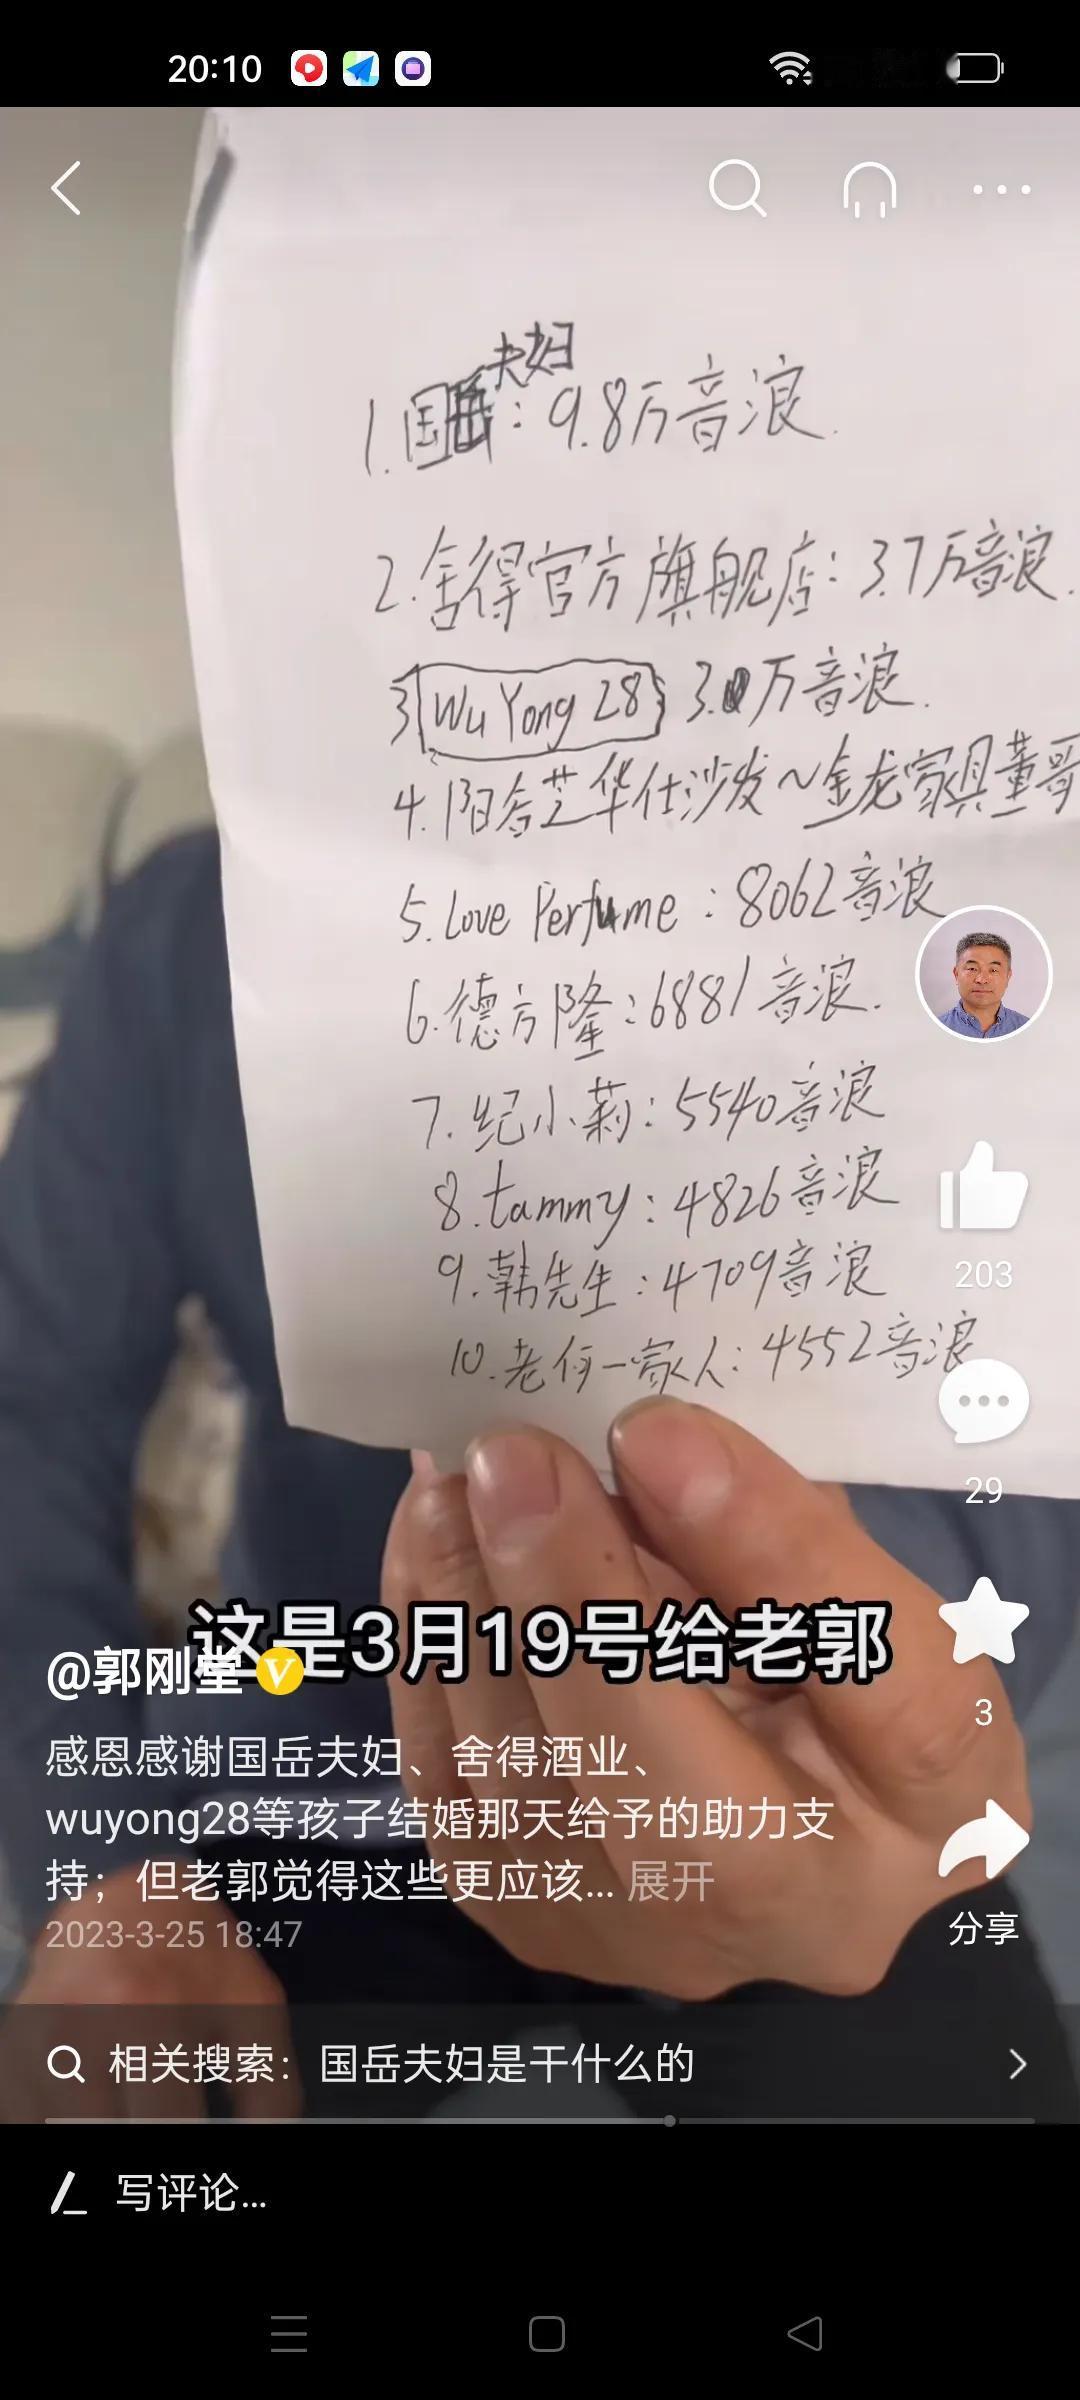 20:10
夫妇
1.国岳:9.8万音浪.
2.舍得官方旗舰店:3.7万音浪.
3 WuYong 28 3.0万音浪.
4.阳谷芝华仕沙发~金龙家具董哥
5.Love Perfume:8062音浪
6.德方隆:6881音浪.
7.纪小莉:5540音浪
8.tammy:4826音浪
9.韩先生:4709音浪
10.老何一家人:4552音浪
203
29
这是3月19号给老郭
@郭刚堂
3
感恩感谢国岳夫妇、舍得酒业、
wuyong28等孩子结婚那天给予的助力支
持；但老郭觉得这些更应该... 展开
2023-3-25 18:47
分享
相关搜索：国岳夫妇是干什么的
写评论...